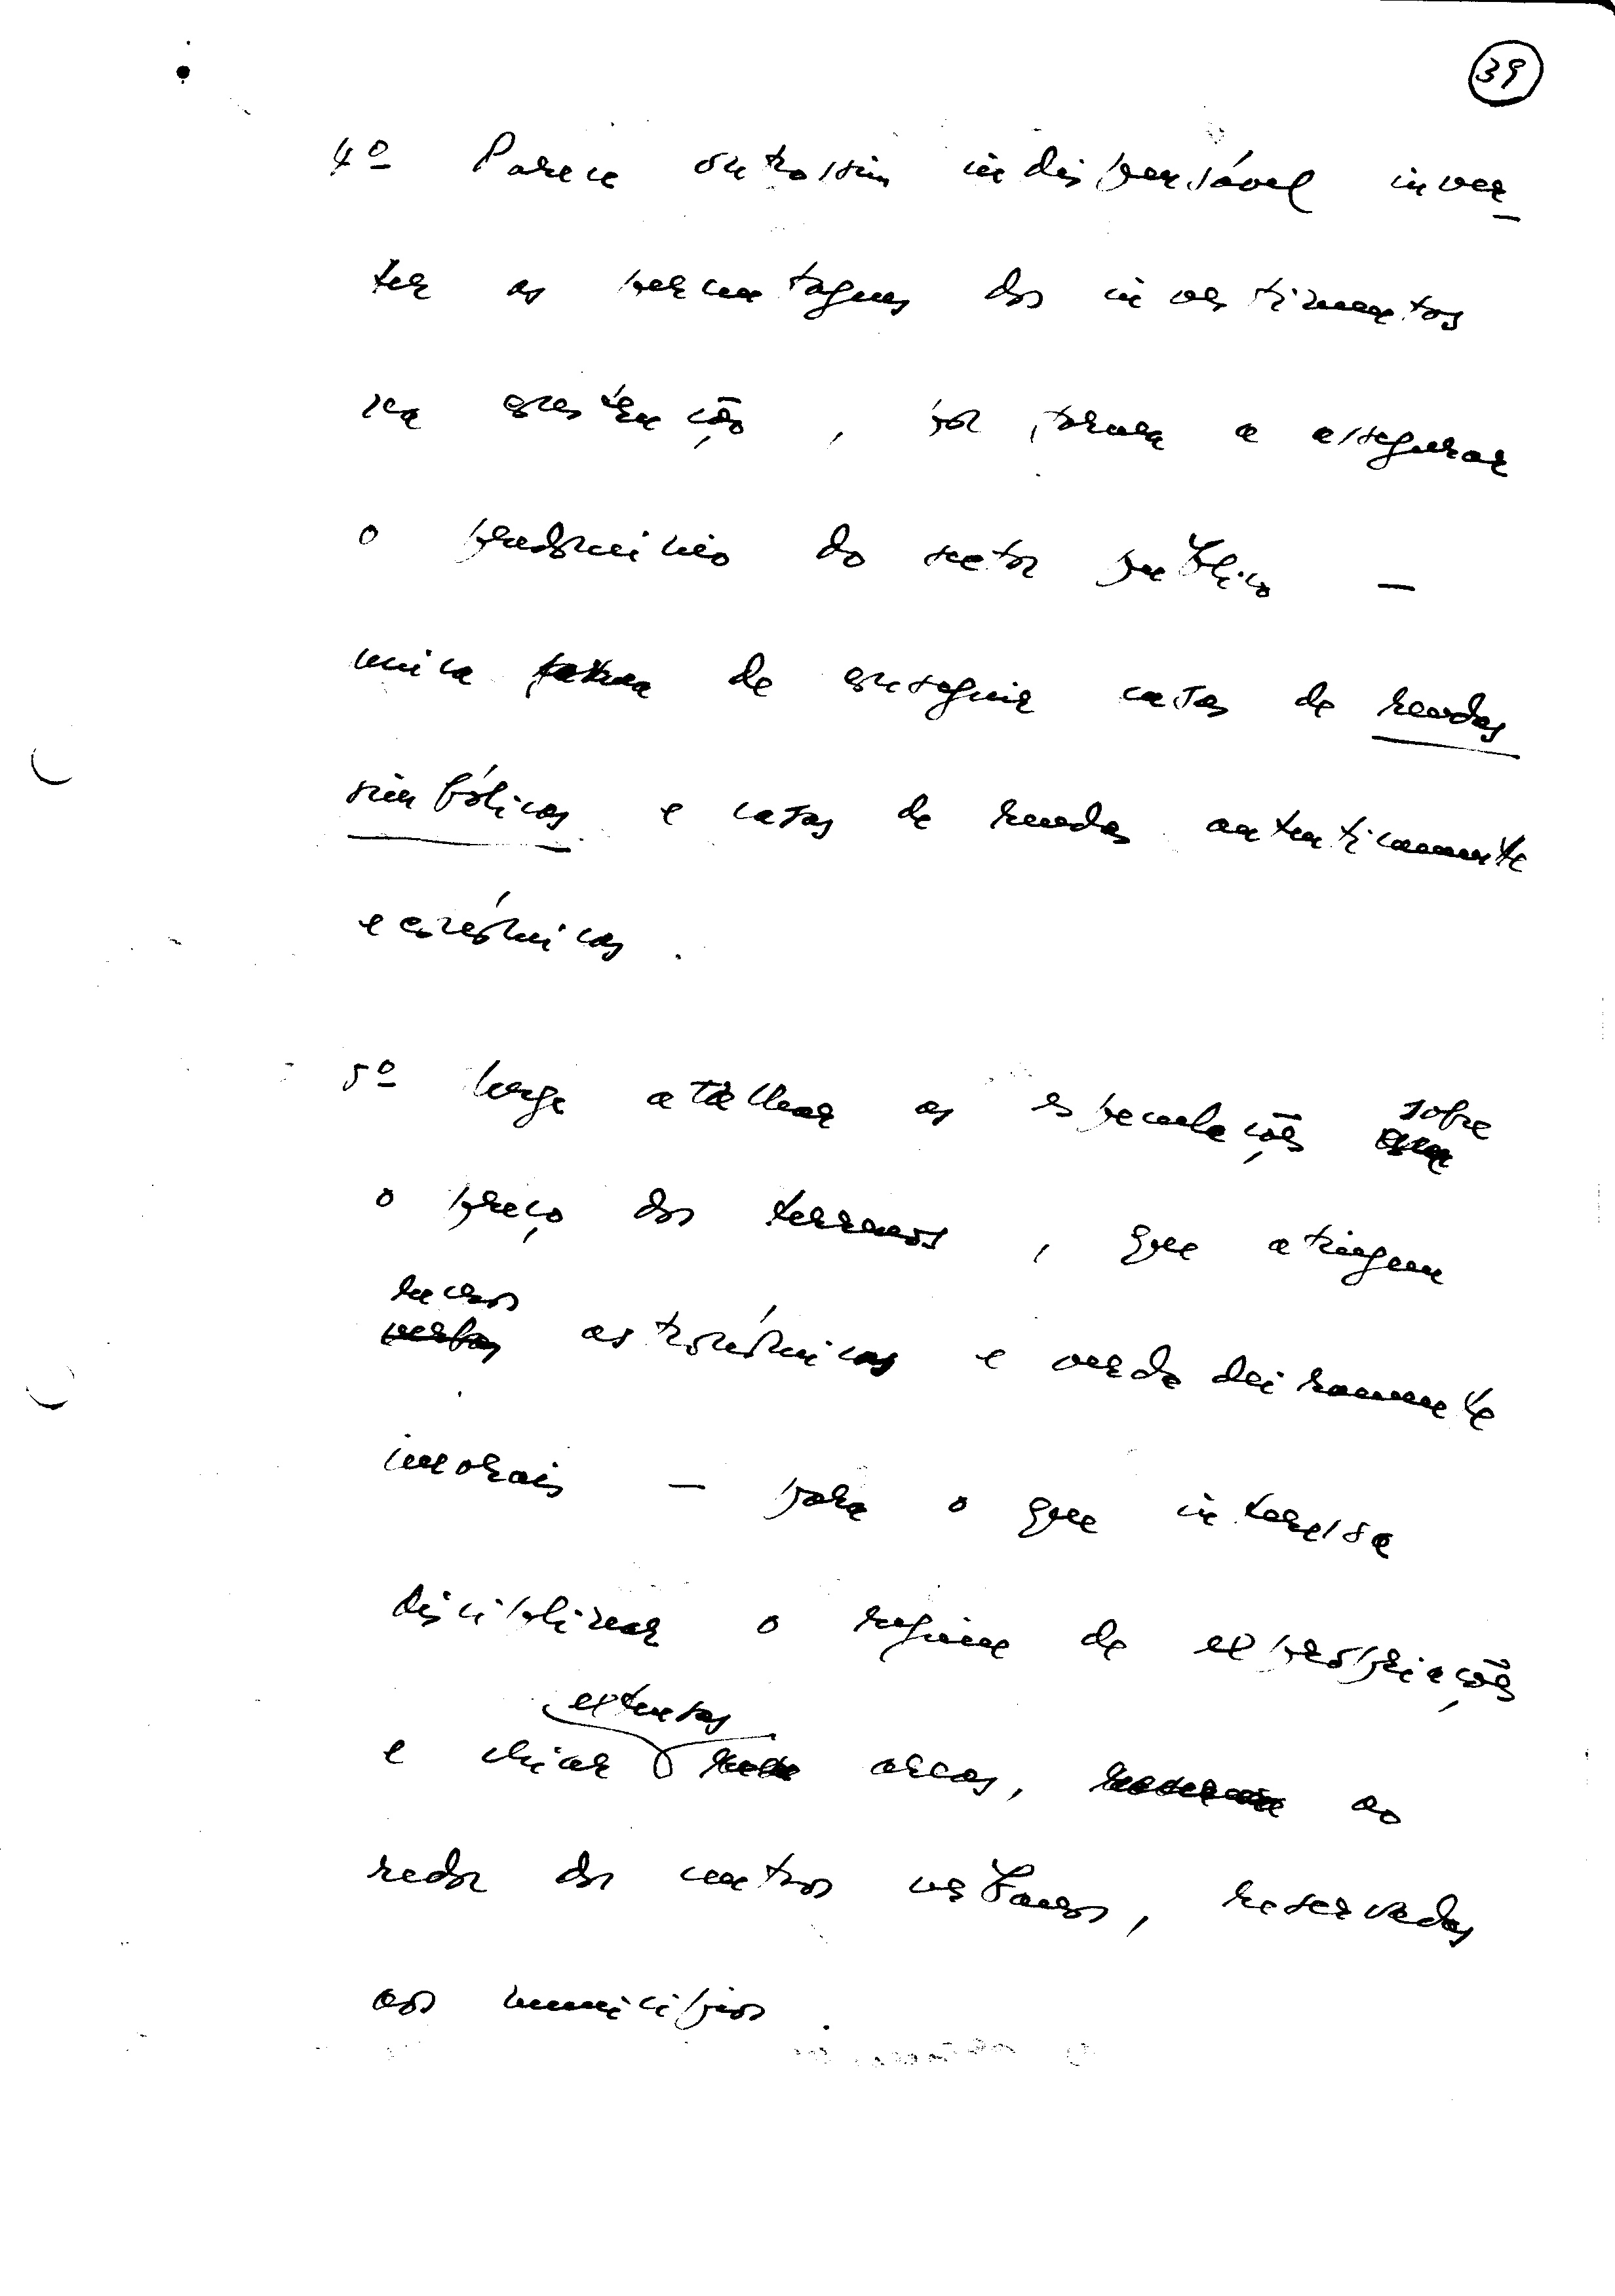 39
4º Parece outrossim indispensável inver-
ter as percentagens dos investimentos
na construção, por forma a assegurar
o predomínio do sector público —
unica forma de conseguir casas de rendas
simbólicas e casas de rendas autenticamente
económicas.
5º Urge atalhar as especulações sobre
o preço dos terrenos, que atingem
lucros
verbas astronómicas e verdadeiramente
imorais — para o que interessa
disciplinar o regime de expropriações
extensas
e criar areas, ao
redor dos centros urbanos, reservadas
aos municípios.